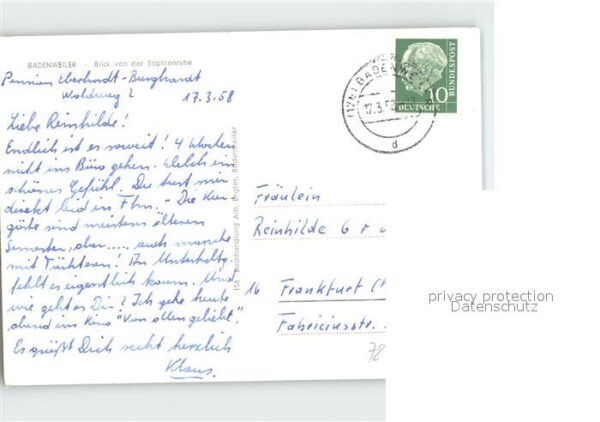 BADENWEILER - Blick von der Sophienruhe
Pension Eberhardt-Burghardt
Waldweg 2 17.3.58
Liebe Reinhilde!
Endlich ist es soweit! 4 Wochen
nicht ins Büro gehen. Welch ein
schönes Gefühl. Du tust mir
direkt leid in Ffm. - Die Kur
gäste sind meistens älteren
Semester, aber ..... auch manche
mit Töchtern! An Unterhaltg.
fehlt es eigentlich kaum. Und
wie geht es Dir? Ich gehe heute
abend ins Kino "Von allen geliebt".
Es grüßt Dich recht herzlich
Klaus.
158 Buchhandlung Alb. Engler, Badenweiler
(17b) BADENWEI
17.3.58
d
10
DEUTSCHE
BUNDESPOST
Fräulein
Reinhilde G r u
16 Frankfurt (
Fabriciusstr.
78
privacy protection
Datenschutz